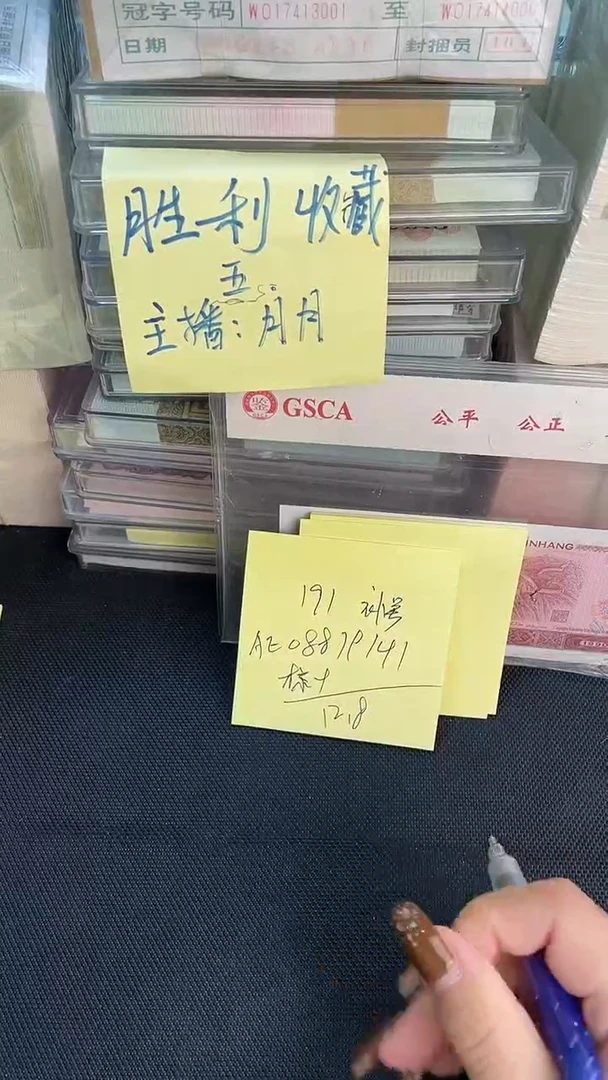 冠字号码 W017413001 至
日期 封捆员
胜利收藏
五
主播：月月
GSCA 公平 公正
INHANG
191
AE08879141
标十
12.8